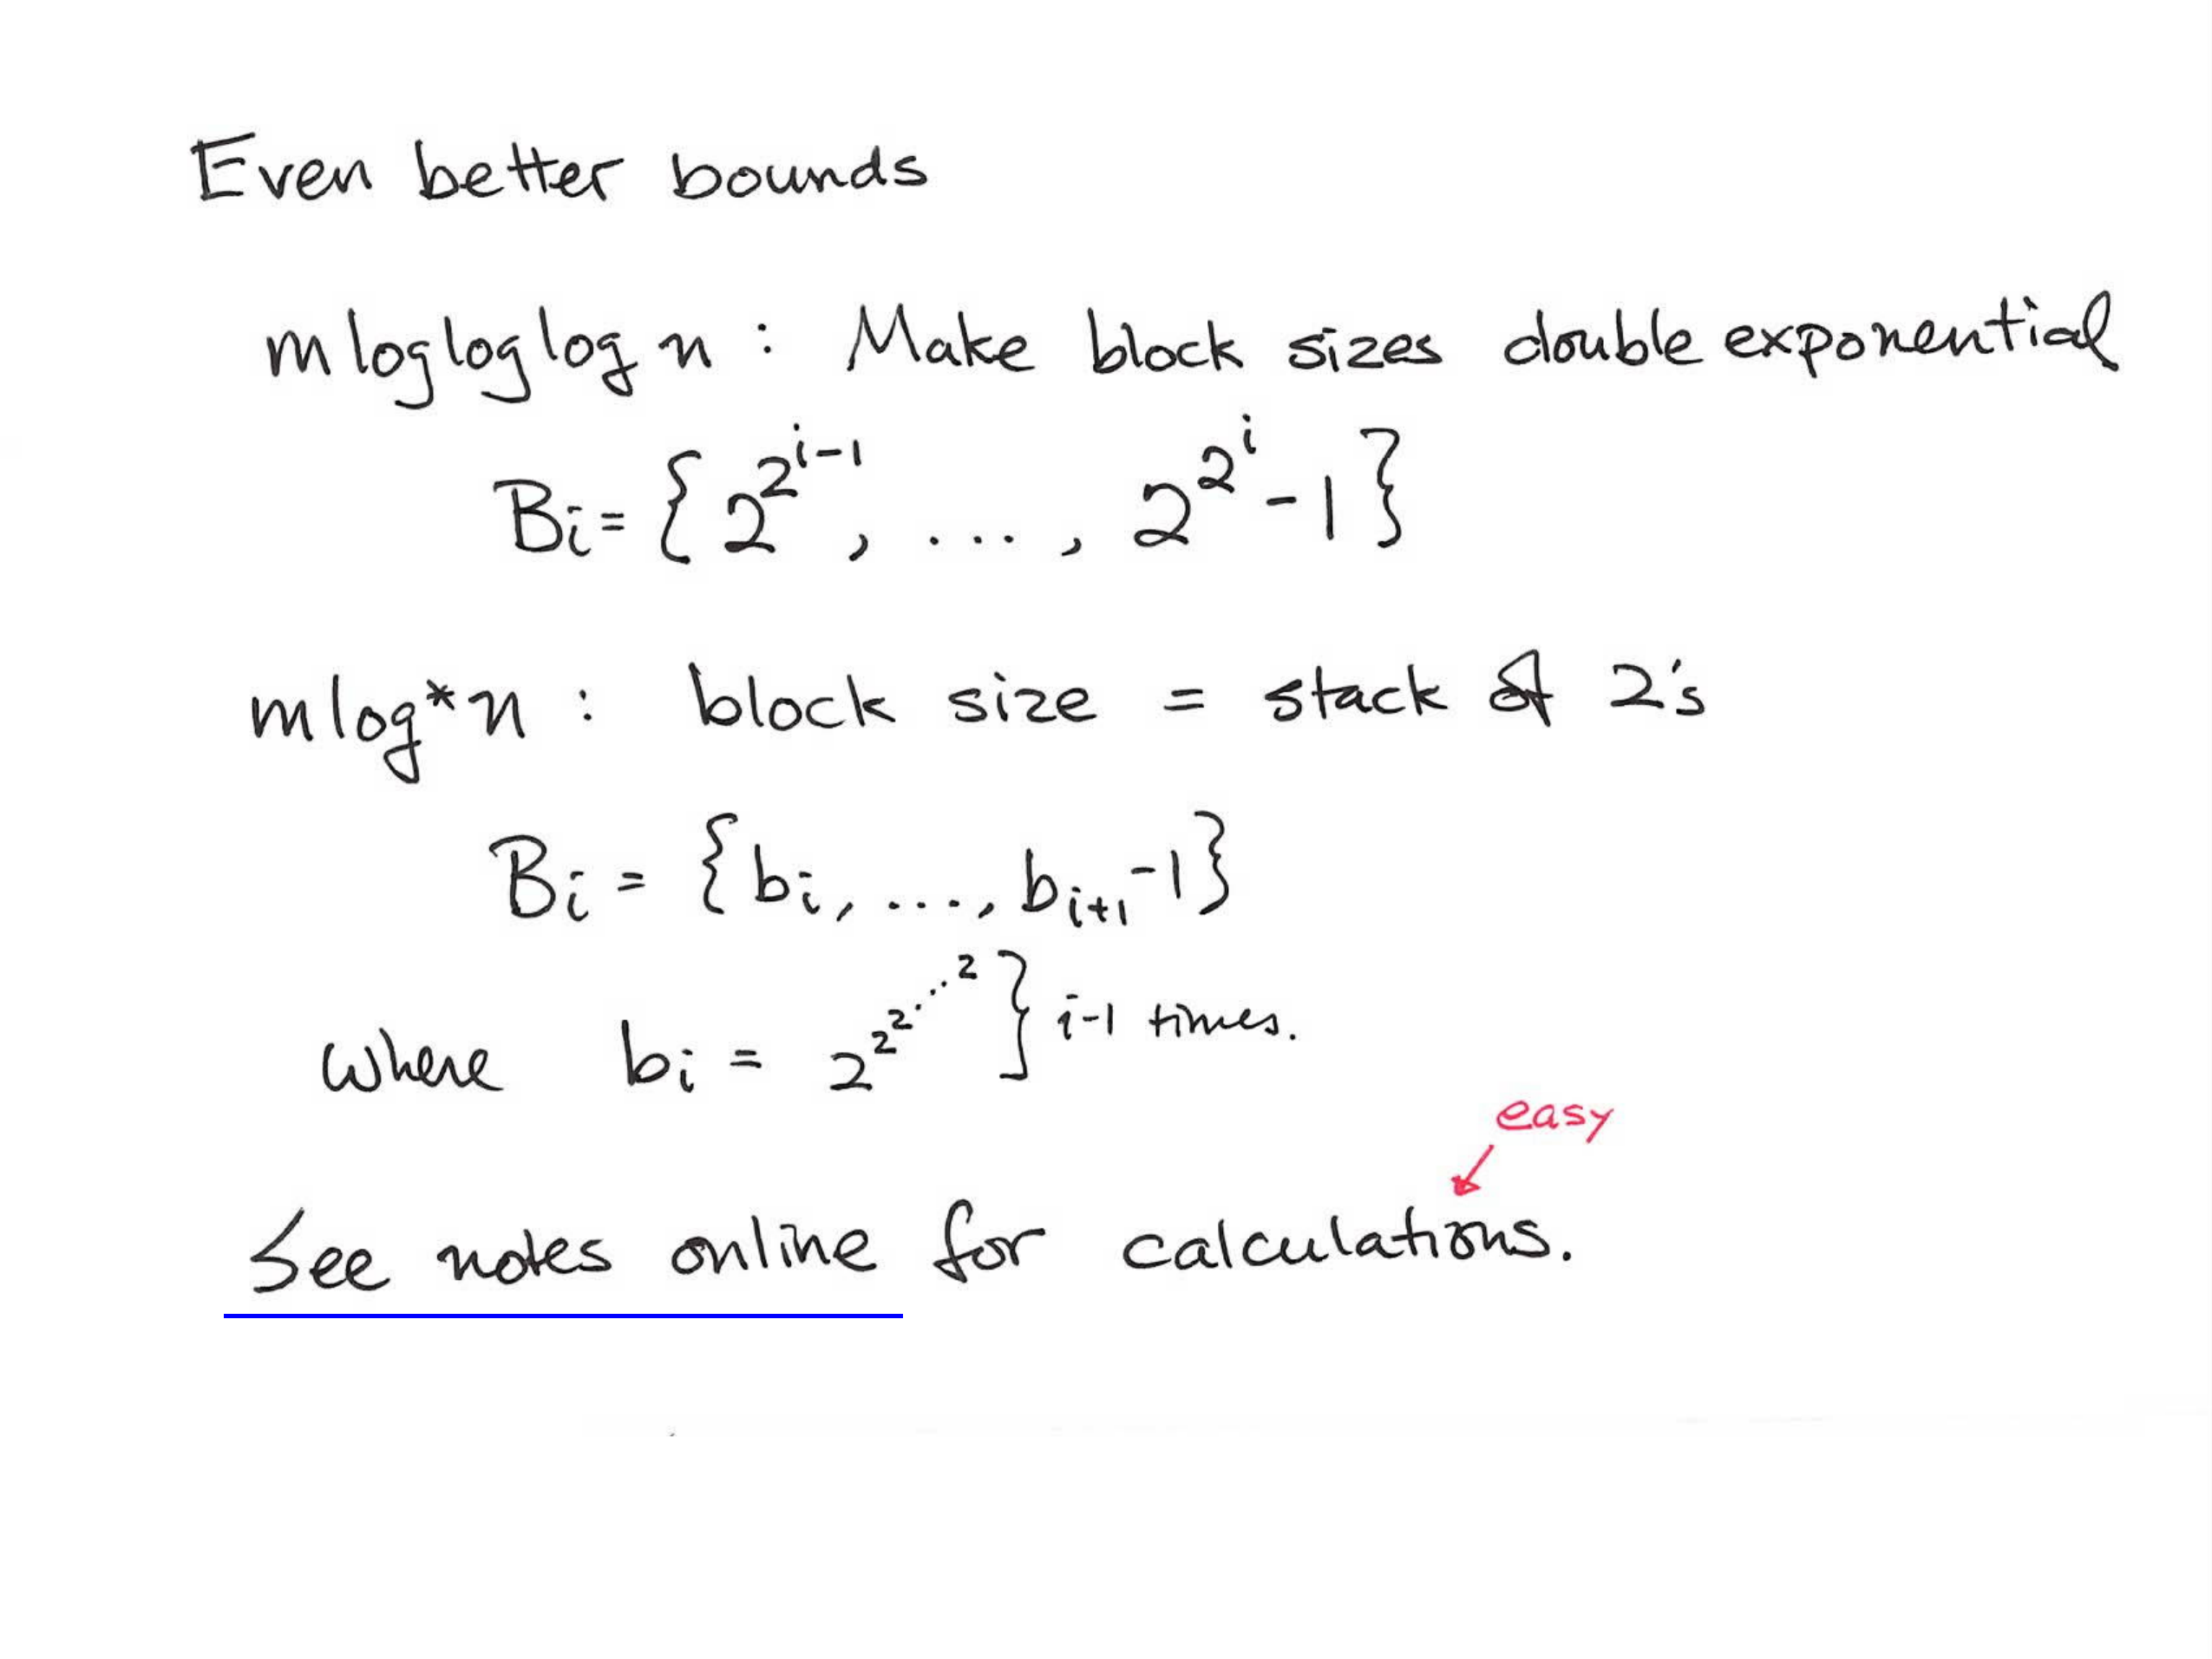 Even better bounds
m log log log n : Make block sizes double exponential
B_i = { 2^{2^{i-1}}, ...., 2^{2^i} - 1 }
m log* n : block size = stack of 2's
B_i = { b_i, ...., b_{i+1} - 1 }
where b_i = 2^{2^{2^{⋰^{2}}}} } i-1 times.
easy
See notes online for calculations.